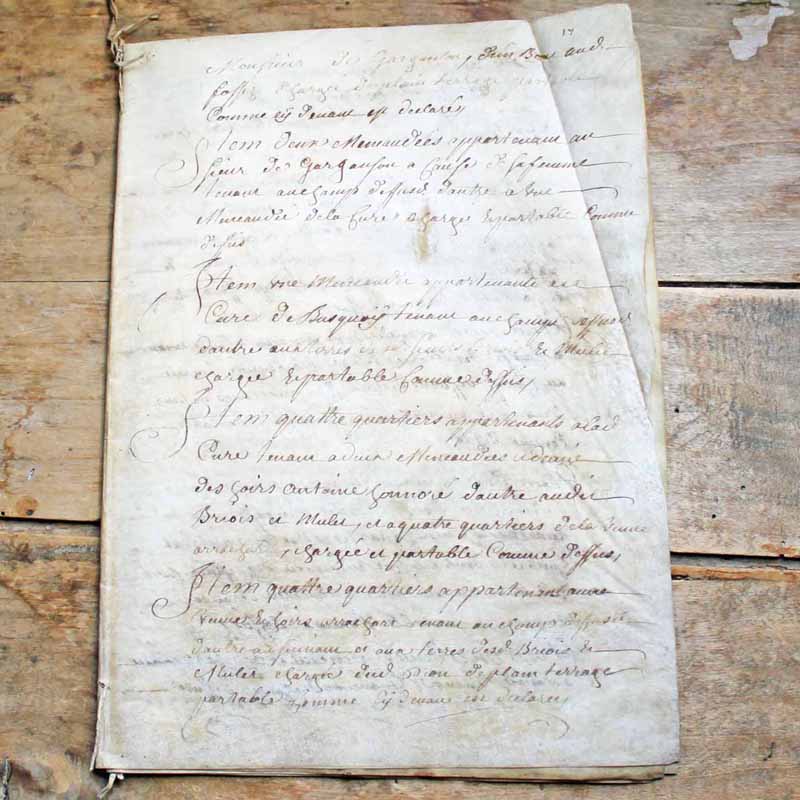 17
Monsieur de Garganson,
fosse chargé de plain terrage
Comme cÿ devant est declarés
Item deux Mencaudées appartenant au
sieur de Garganson a Cause de sa femme
tenant au champ dessusd d'autre a une
Mencaudée de la Cure chargée et partable Comme
dessus
Item une Mencaudée appartenante a la
Cure de Busquoÿ tenant au champ dessusd
d'autre aux terres et Mulet
chargée et partable Comme dessus,
Item quattre quartiers appartenants a lad
Cure tenant a deux Mencaudées
des hoirs Antoine honnoré d'autre audit
Briois et Mulet, et a quatre quartiers de la veuve
, chargée et partable Comme dessus,
Item quattre quartiers appartenant a une
veuve et hoirs tenant au champ dessusd
d'autre et aux terres desd Briois et
Mulet chargée dud Don de plain terrage
partable Comme cÿ devant est declarés